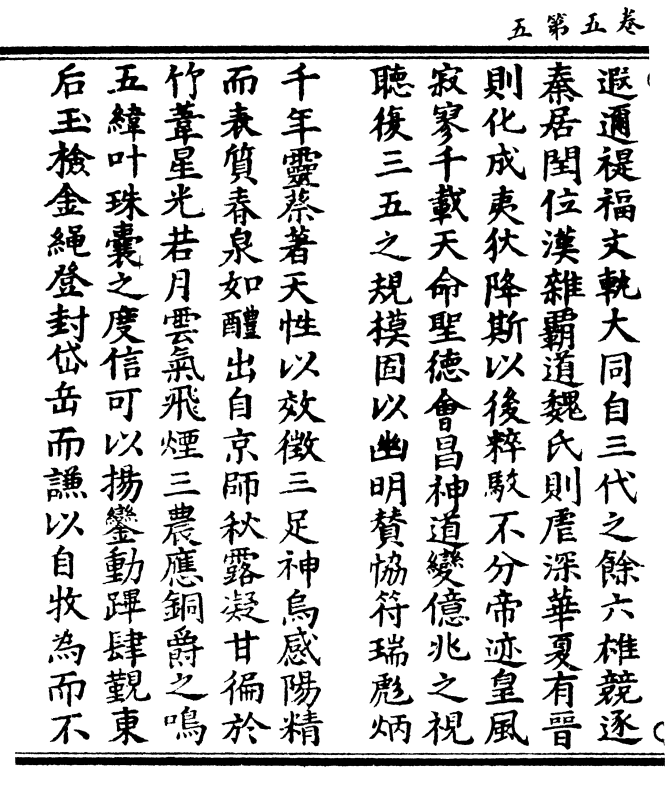 卷五第五
遐邇禔福文軌大同自三代之餘六雄競逐
秦居閏位漢雜霸道魏氏則虐深華夏有晉
則化成夷狄降斯以後粹駮不分帝迹皇風
寂寥千載天命聖德會昌神道變億兆之視
聽復三五之規模固以幽明贊恊符瑞彪炳
千年靈蔡著天性以效徵三足神烏感陽精
而表質春泉如醴出自京師秋露凝甘徧於
竹葦星光若月雲氣飛煙三農應銅爵之鳴
五緯叶珠囊之度信可以揚鑾動蹕肆覲東
后玉檢金繩登封岱岳而謙以自牧為而不